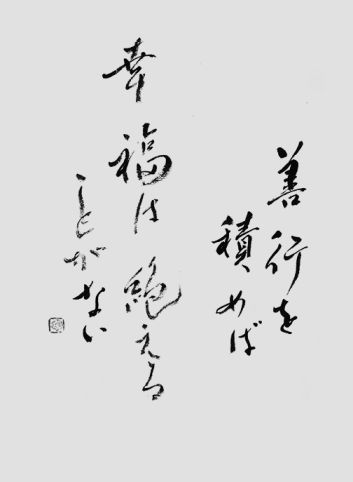 善行を
積めば
幸福は絶える
ことがない